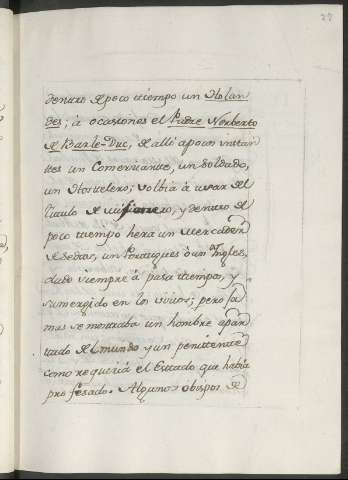 27
dentro de poco tiempo un Holan
des; à ocasiones el Padre Norberto
de Barle-Duc, de alli apocos instan
tes un Comerciante, un Soldado,
un Hostelero; volbia à usar del
titulo de misionero, y dentro de
poco tiempo hera un mercader
de sedas, un Portugues ò un Ingles,
dado siempre à pasa tiempos, y
sumergido en los vicios; pero ja
mas se mostraba un hombre apar
tado del mundo y un penitente
como requeria el Estado que habia
profesado. Algunos obispos de